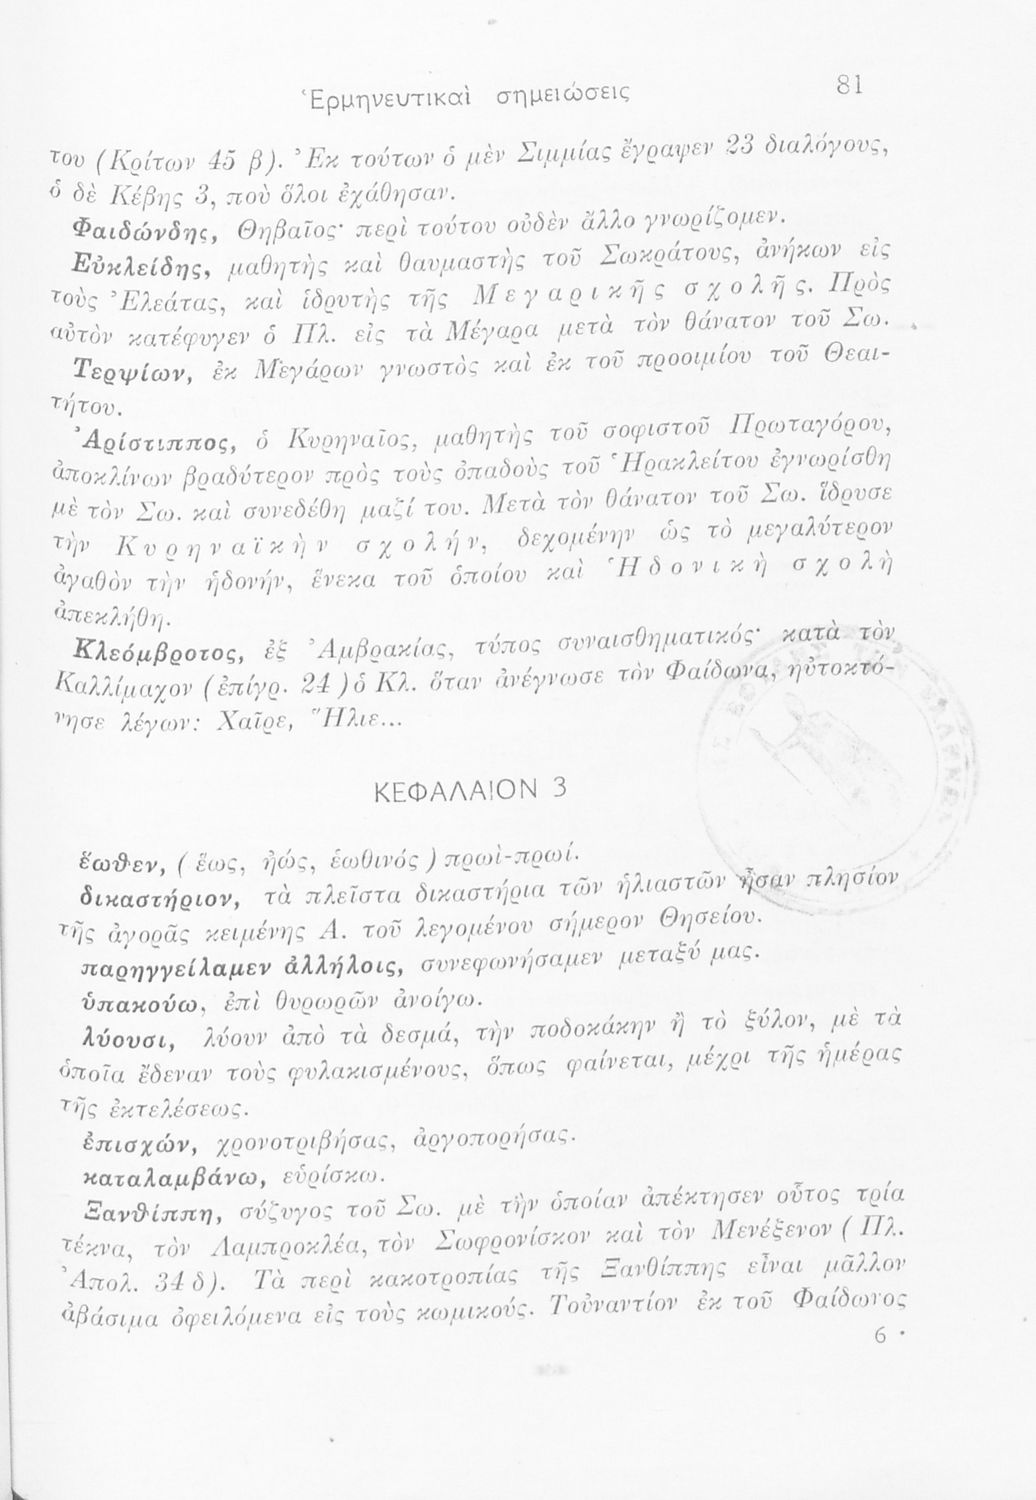 Ἑρμηνευτικαὶ σημειώσεις 81
του (Κρίτων 45 β). Ἐκ τούτων ὁ μὲν Σιμμίας ἔγραψεν 23 διαλόγους,
ὁ δὲ Κέβης 3, ποὺ ὅλοι ἐχάθησαν.
Φαιδώνδης, Θηβαῖος· περὶ τούτου οὐδὲν ἄλλο γνωρίζομεν.
Εὐκλείδης, μαθητὴς καὶ θαυμαστὴς τοῦ Σωκράτους, ἀνήκων εἰς
τοὺς Ἐλεάτας, καὶ ἱδρυτὴς τῆς Μεγαρικῆς σχολῆς. Πρὸς
αὐτὸν κατέφυγεν ὁ Πλ. εἰς τὰ Μέγαρα μετὰ τὸν θάνατον τοῦ Σω.
Τερψίων, ἐκ Μεγάρων γνωστὸς καὶ ἐκ τοῦ προοιμίου τοῦ Θεαι-
τήτου.
Ἀρίστιππος, ὁ Κυρηναῖος, μαθητὴς τοῦ σοφιστοῦ Πρωταγόρου,
ἀποκλίνων βραδύτερον πρὸς τοὺς ὀπαδοὺς τοῦ Ἡρακλείτου ἐγνωρίσθη
μὲ τὸν Σω. καὶ συνεδέθη μαζί του. Μετὰ τὸν θάνατον τοῦ Σω. ἵδρυσε
τὴν Κυρηναϊκὴν σχολήν, δεχομένην ὡς τὸ μεγαλύτερον
ἀγαθὸν τὴν ἡδονήν, ἕνεκα τοῦ ὁποίου καὶ Ἡδονικὴ σχολὴ
ἀπεκλήθη.
Κλεόμβροτος, ἐξ Ἀμβρακίας, τύπος συναισθηματικός· κατὰ τὸν
Καλλίμαχον (ἐπίγρ. 24) ὁ Κλ. ὅταν ἀνέγνωσε τὸν Φαίδωνα, ηὐτοκτό-
νησε λέγων: Χαῖρε, Ἥλιε...
ΚΕΦΑΛΑΙΟΝ 3
ἕωθεν, (ἕως, ἠώς, ἑωθινός) πρωὶ-πρωί.
δικαστήριον, τὰ πλεῖστα δικαστήρια τῶν ἡλιαστῶν ἦσαν πλησίον
τῆς ἀγορᾶς κειμένης Α. τοῦ λεγομένου σήμερον Θησείου.
παρηγγείλαμεν ἀλλήλοις, συνεφωνήσαμεν μεταξύ μας.
ὑπακούω, ἐπὶ θυρωρῶν ἀνοίγω.
λύουσι, λύουν ἀπὸ τὰ δεσμά, τὴν ποδοκάκην ἢ τὸ ξύλον, μὲ τὰ
ὁποῖα ἔδεναν τοὺς φυλακισμένους, ὅπως φαίνεται, μέχρι τῆς ἡμέρας
τῆς ἐκτελέσεως.
ἐπισχών, χρονοτριβήσας, ἀργοπορήσας.
καταλαμβάνω, εὑρίσκω.
Ξανθίππη, σύζυγος τοῦ Σω. μὲ τὴν ὁποίαν ἀπέκτησεν οὗτος τρία
τέκνα, τὸν Λαμπροκλέα, τὸν Σωφρονίσκον καὶ τὸν Μενέξενον (Πλ.
Ἀπολ. 34 δ). Τὰ περὶ κακοτροπίας τῆς Ξανθίππης εἶναι μᾶλλον
ἀβάσιμα ὀφειλόμενα εἰς τοὺς κωμικούς. Τοὐναντίον ἐκ τοῦ Φαίδωνος
6 ·